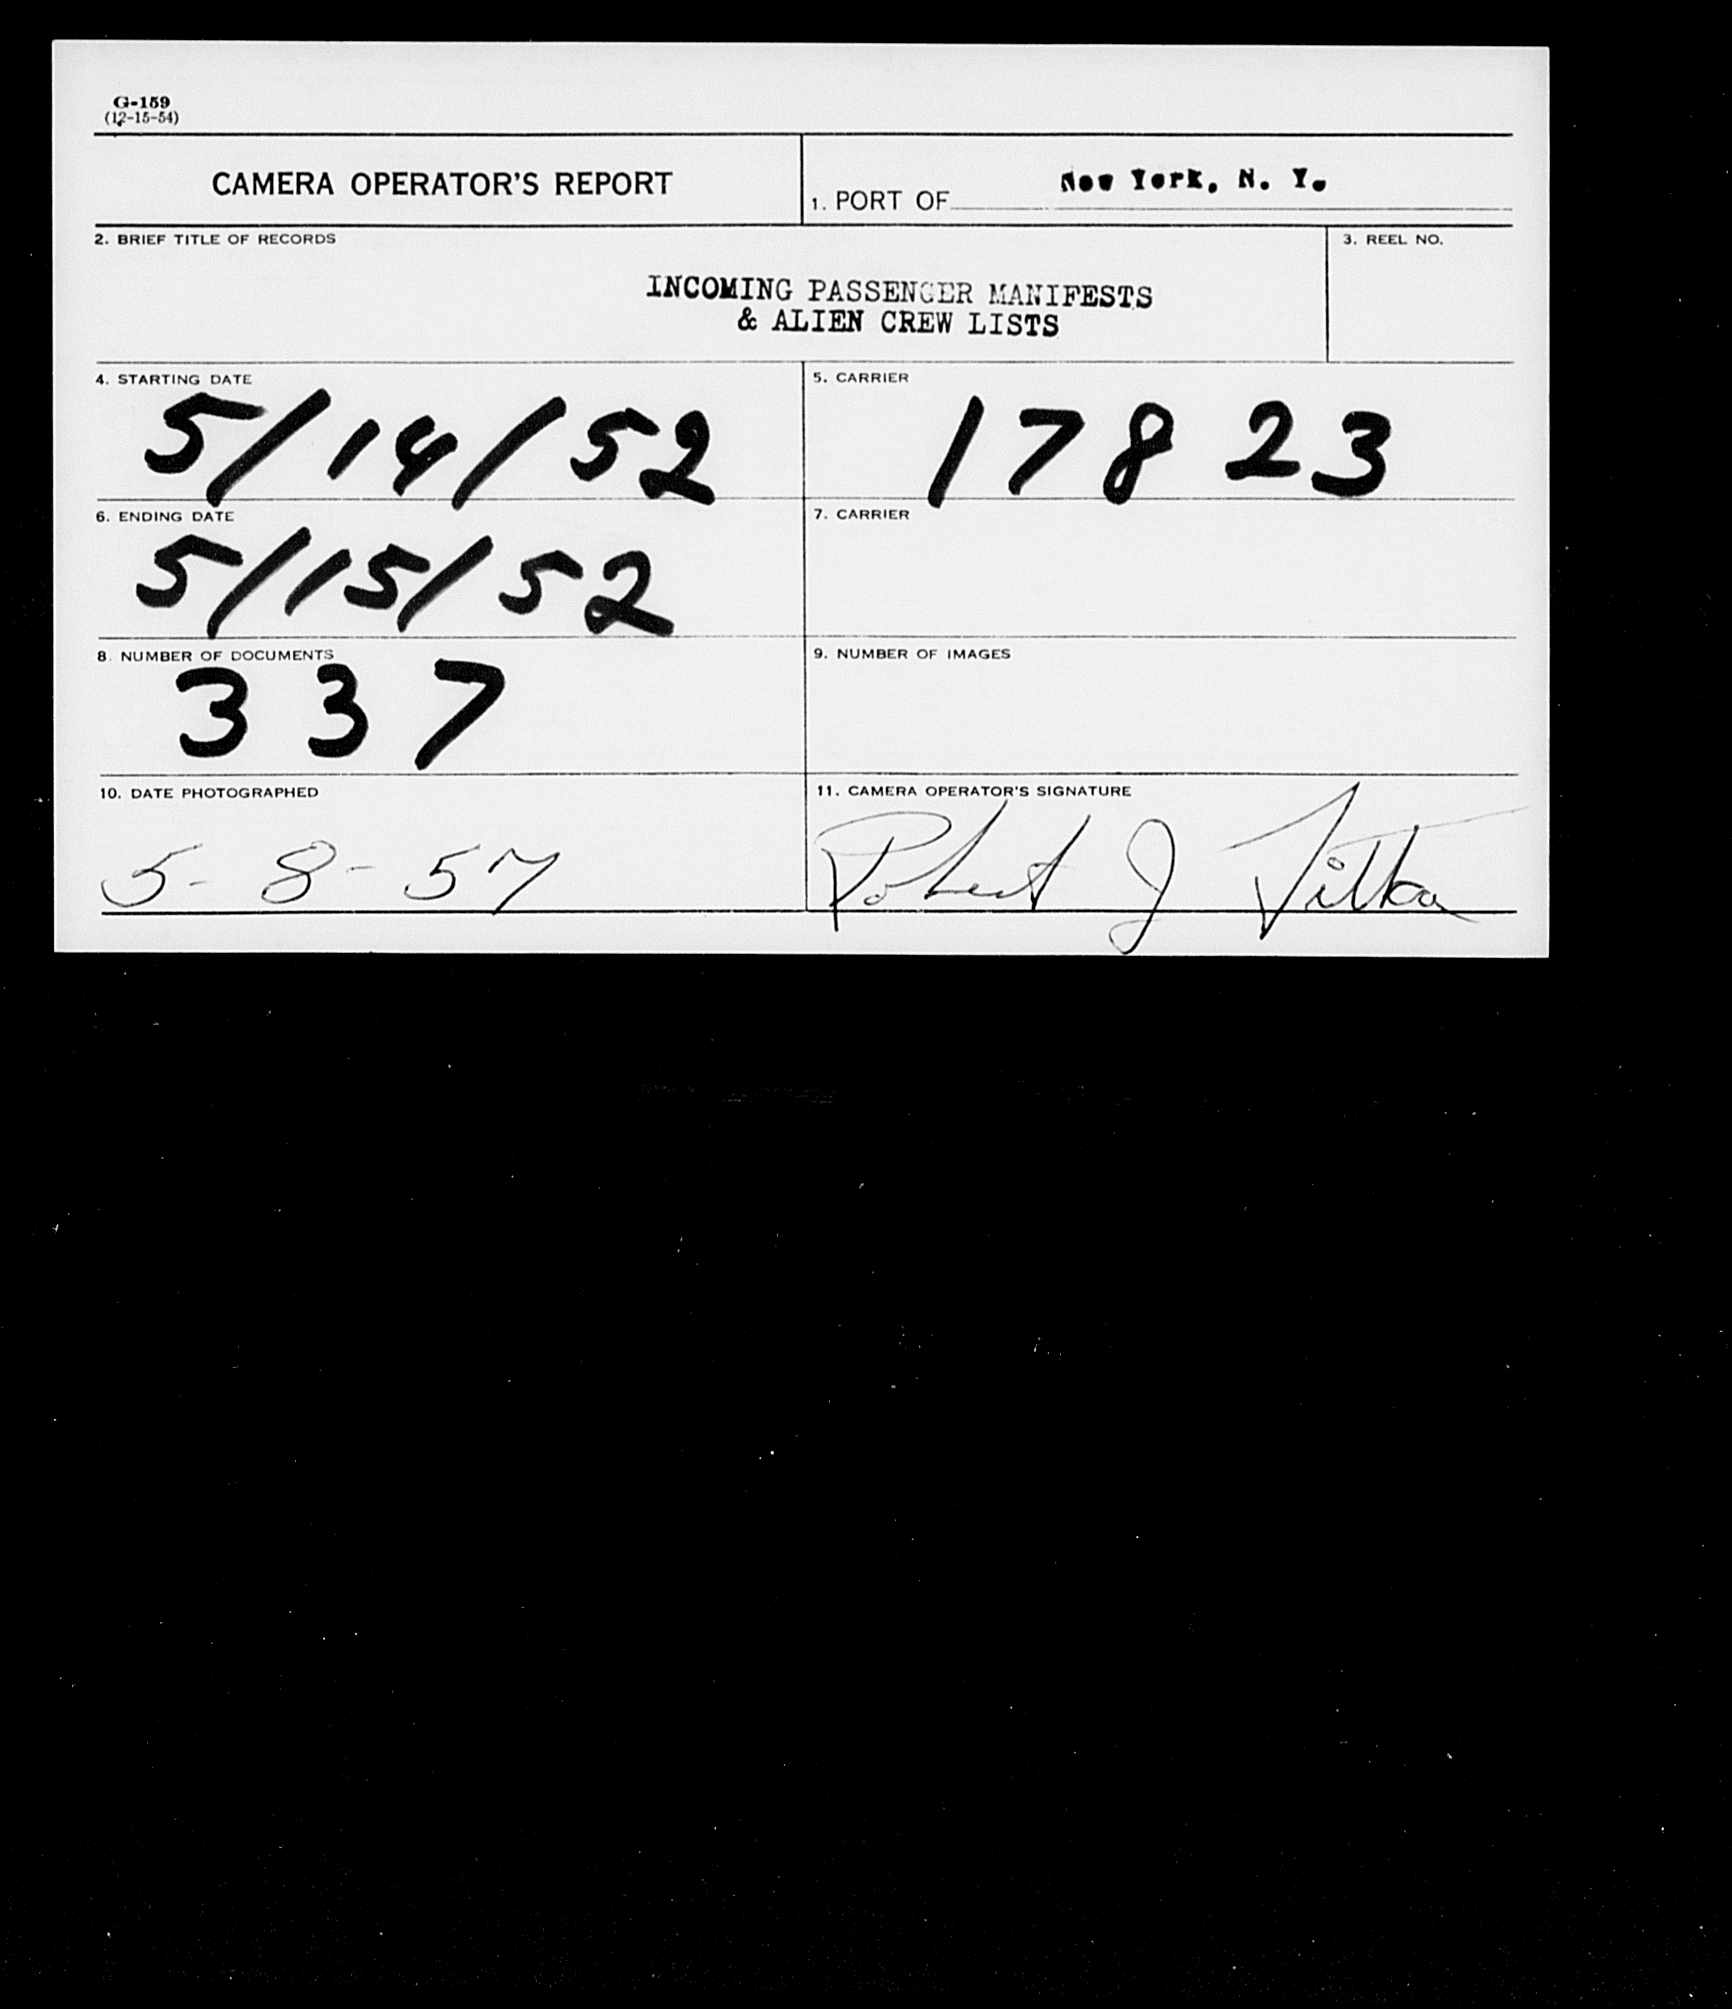 G-159
(12-15-54)
CAMERA OPERATOR'S REPORT
1. PORT OF New York, N. Y.
2. BRIEF TITLE OF RECORDS
3. REEL NO.
INCOMING PASSENGER MANIFESTS
& ALIEN CREW LISTS
4. STARTING DATE
5/14/52
5. CARRIER
17823
6. ENDING DATE
5/15/52
7. CARRIER
8. NUMBER OF DOCUMENTS
337
9. NUMBER OF IMAGES
10. DATE PHOTOGRAPHED
5-8-57
11. CAMERA OPERATOR'S SIGNATURE
Robert J